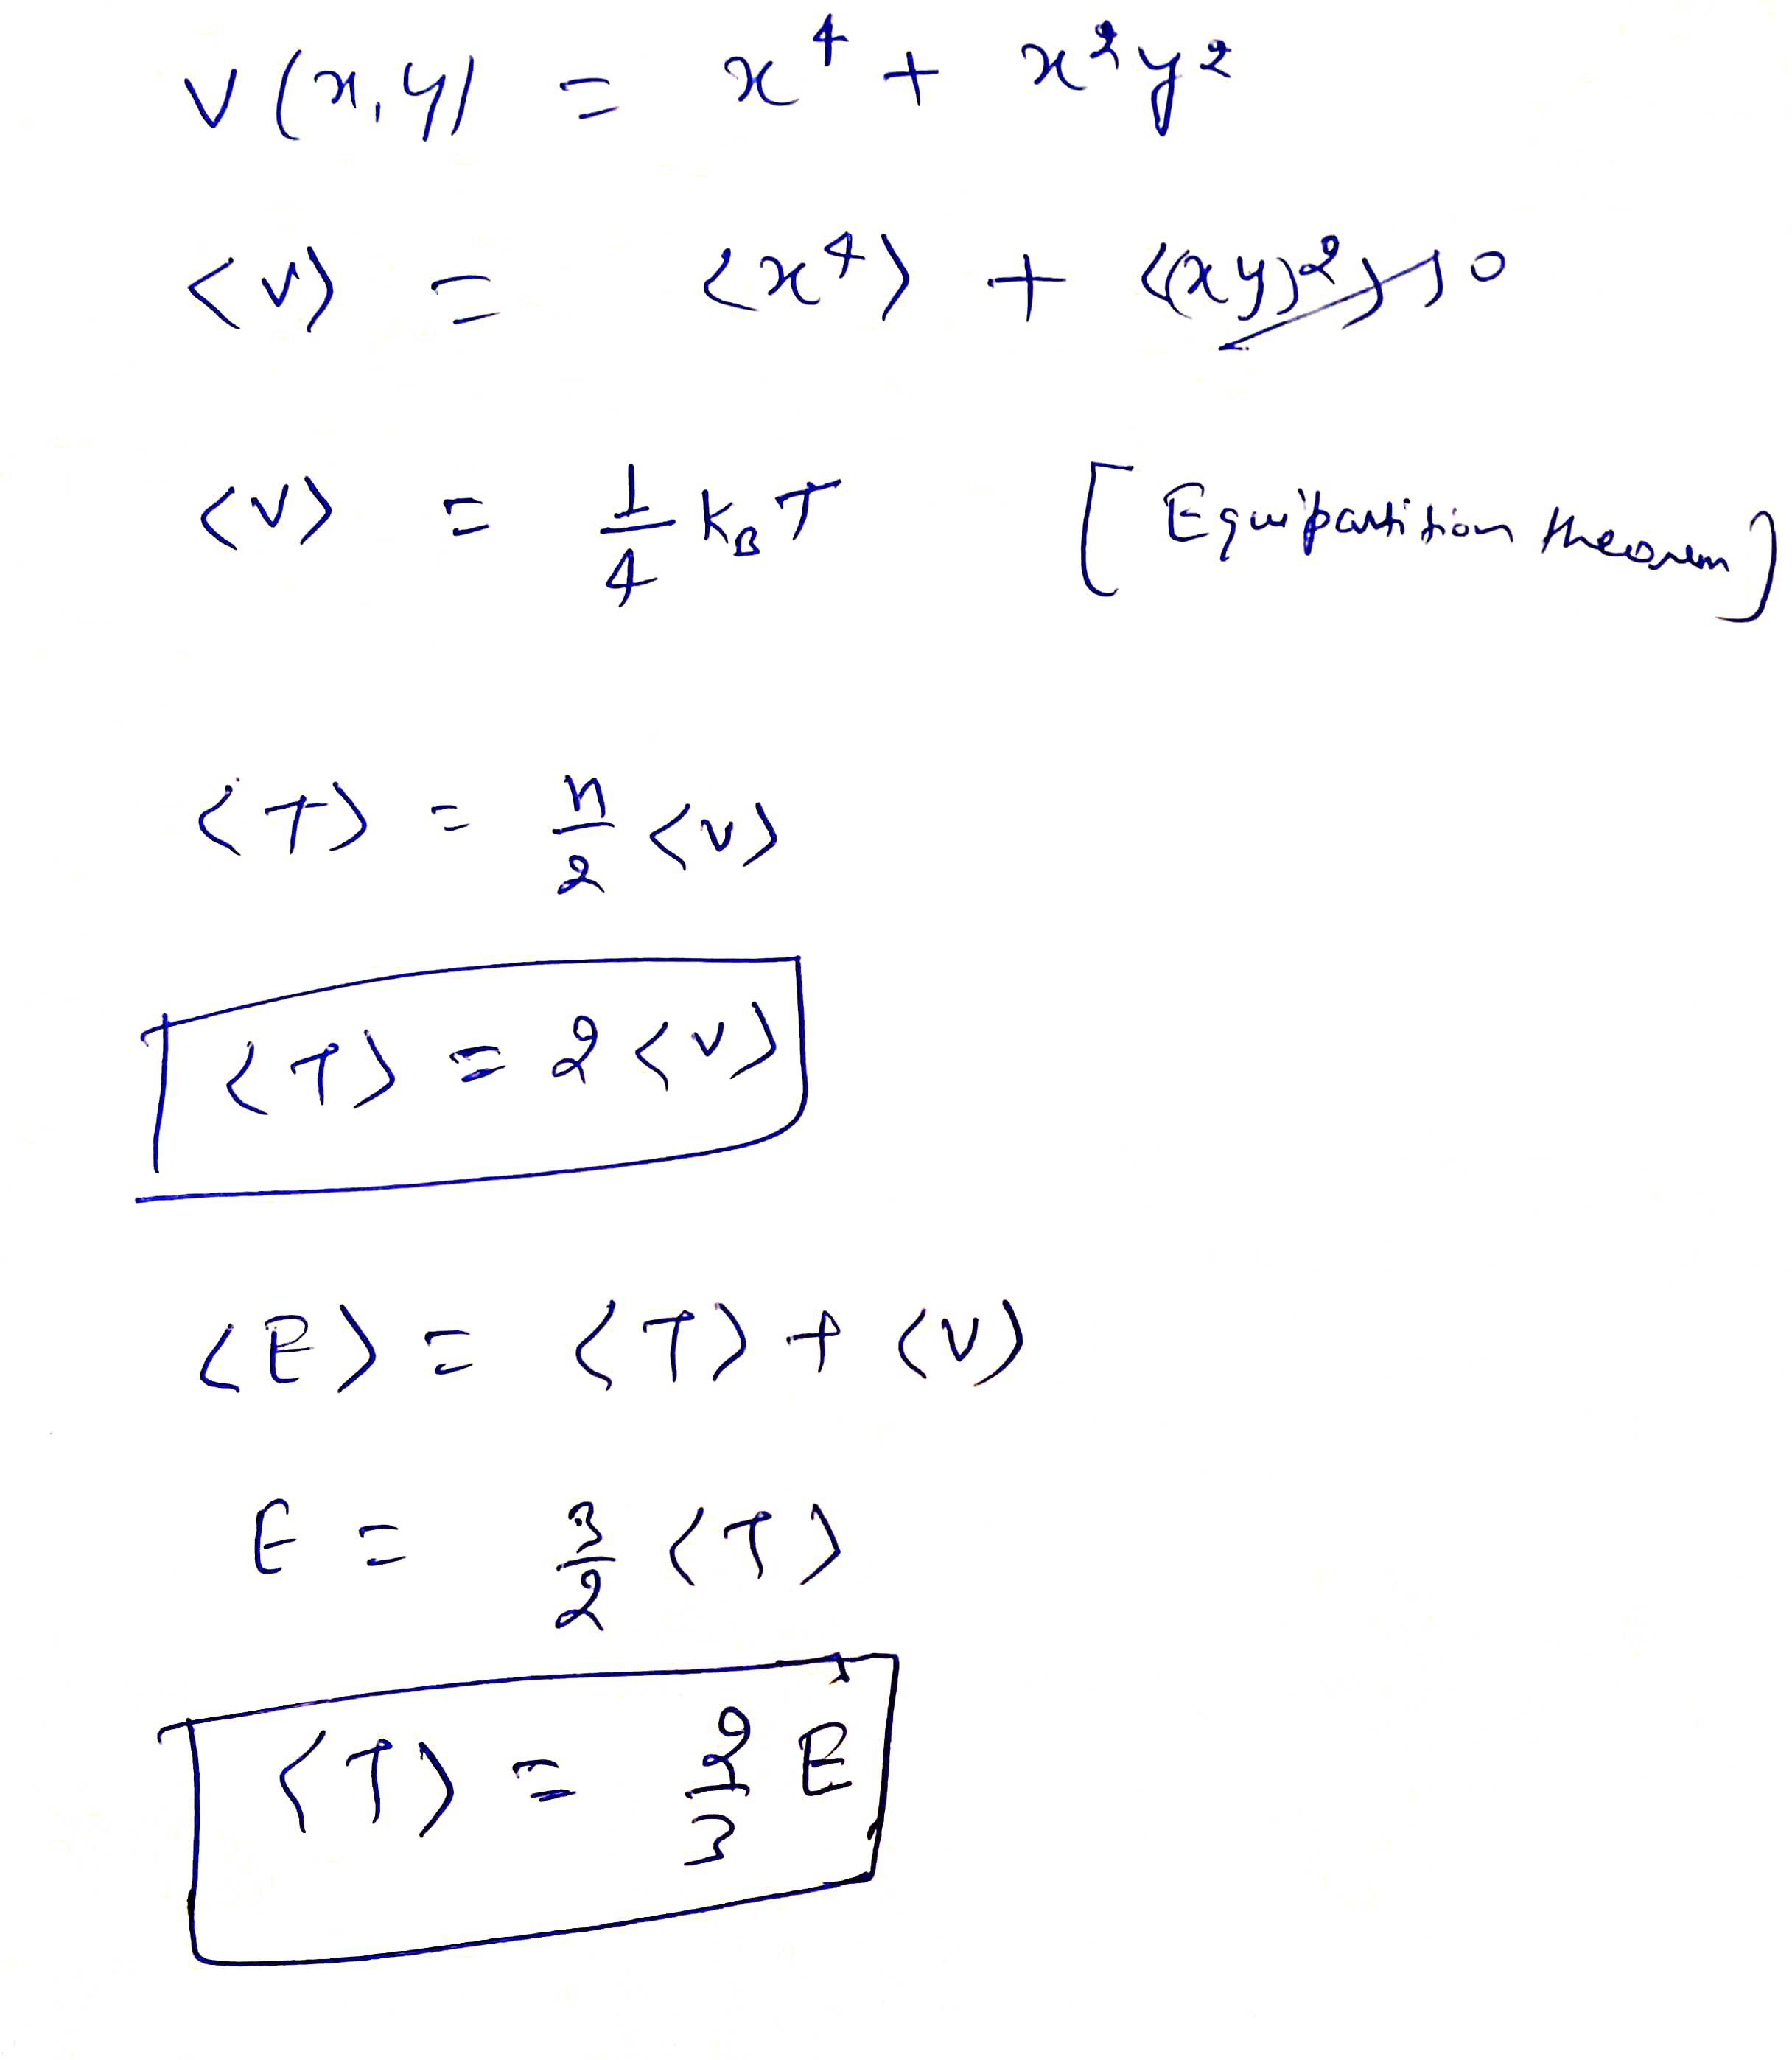 V(x,y) = x⁴ + x²y²
<V> = <x⁴> + <(xy)²> 0
<V> = 1/4 K_B T [Equipartition theorem]
<T> = n/2 <V>
<T> = 2 <V>
<E> = <T> + <V>
E = 3/2 <T>
<T> = 2/3 E